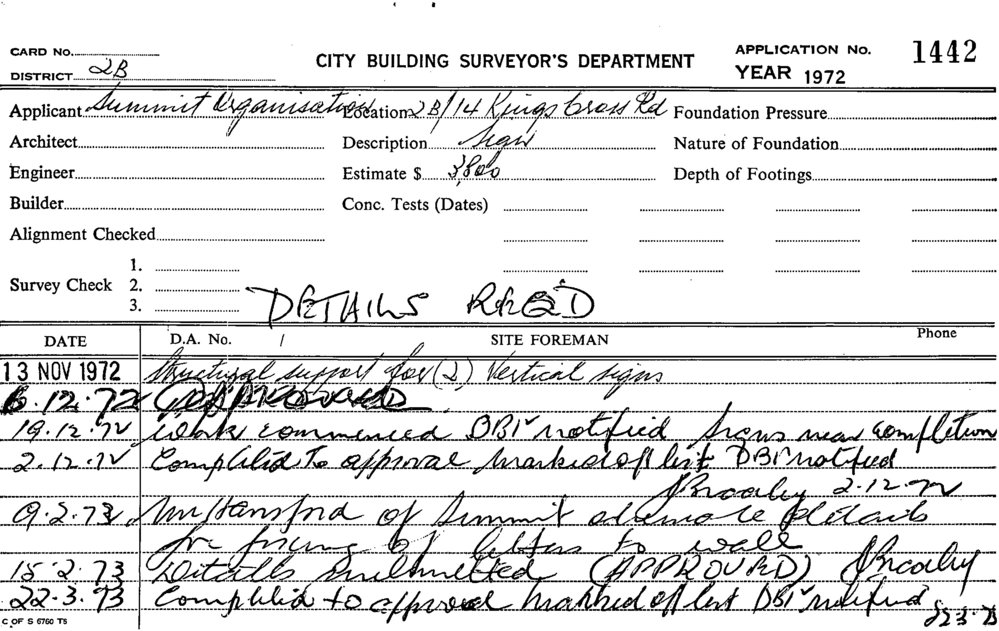 CARD No.
DISTRICT 2B
CITY BUILDING SURVEYOR'S DEPARTMENT
APPLICATION No. 1442
YEAR 1972
Applicant Summit Organisation Location 2B/14 Kings Cross Rd Foundation Pressure
Architect Description Sign Nature of Foundation
Engineer Estimate $ 3,800 Depth of Footings
Builder Conc. Tests (Dates)
Alignment Checked
1.
Survey Check 2.
3.
DETAILS REQ'D
DATE D.A. No. / SITE FOREMAN Phone
13 NOV 1972 Structural support for (2) Vertical signs
6.12.72
19.12.72 Work commenced DBI notified Signs near completion
2.12.72 Complied to approval marked off list DBI notified
2.12.72
9.2.73 Mr Hansford of Summit details
for fixing of letters to wall
15.2.73 Details submitted (APPROVED)
22.3.73 Complied to approval marked off list DBI notified
22.3.73
C OF S 6760 TS